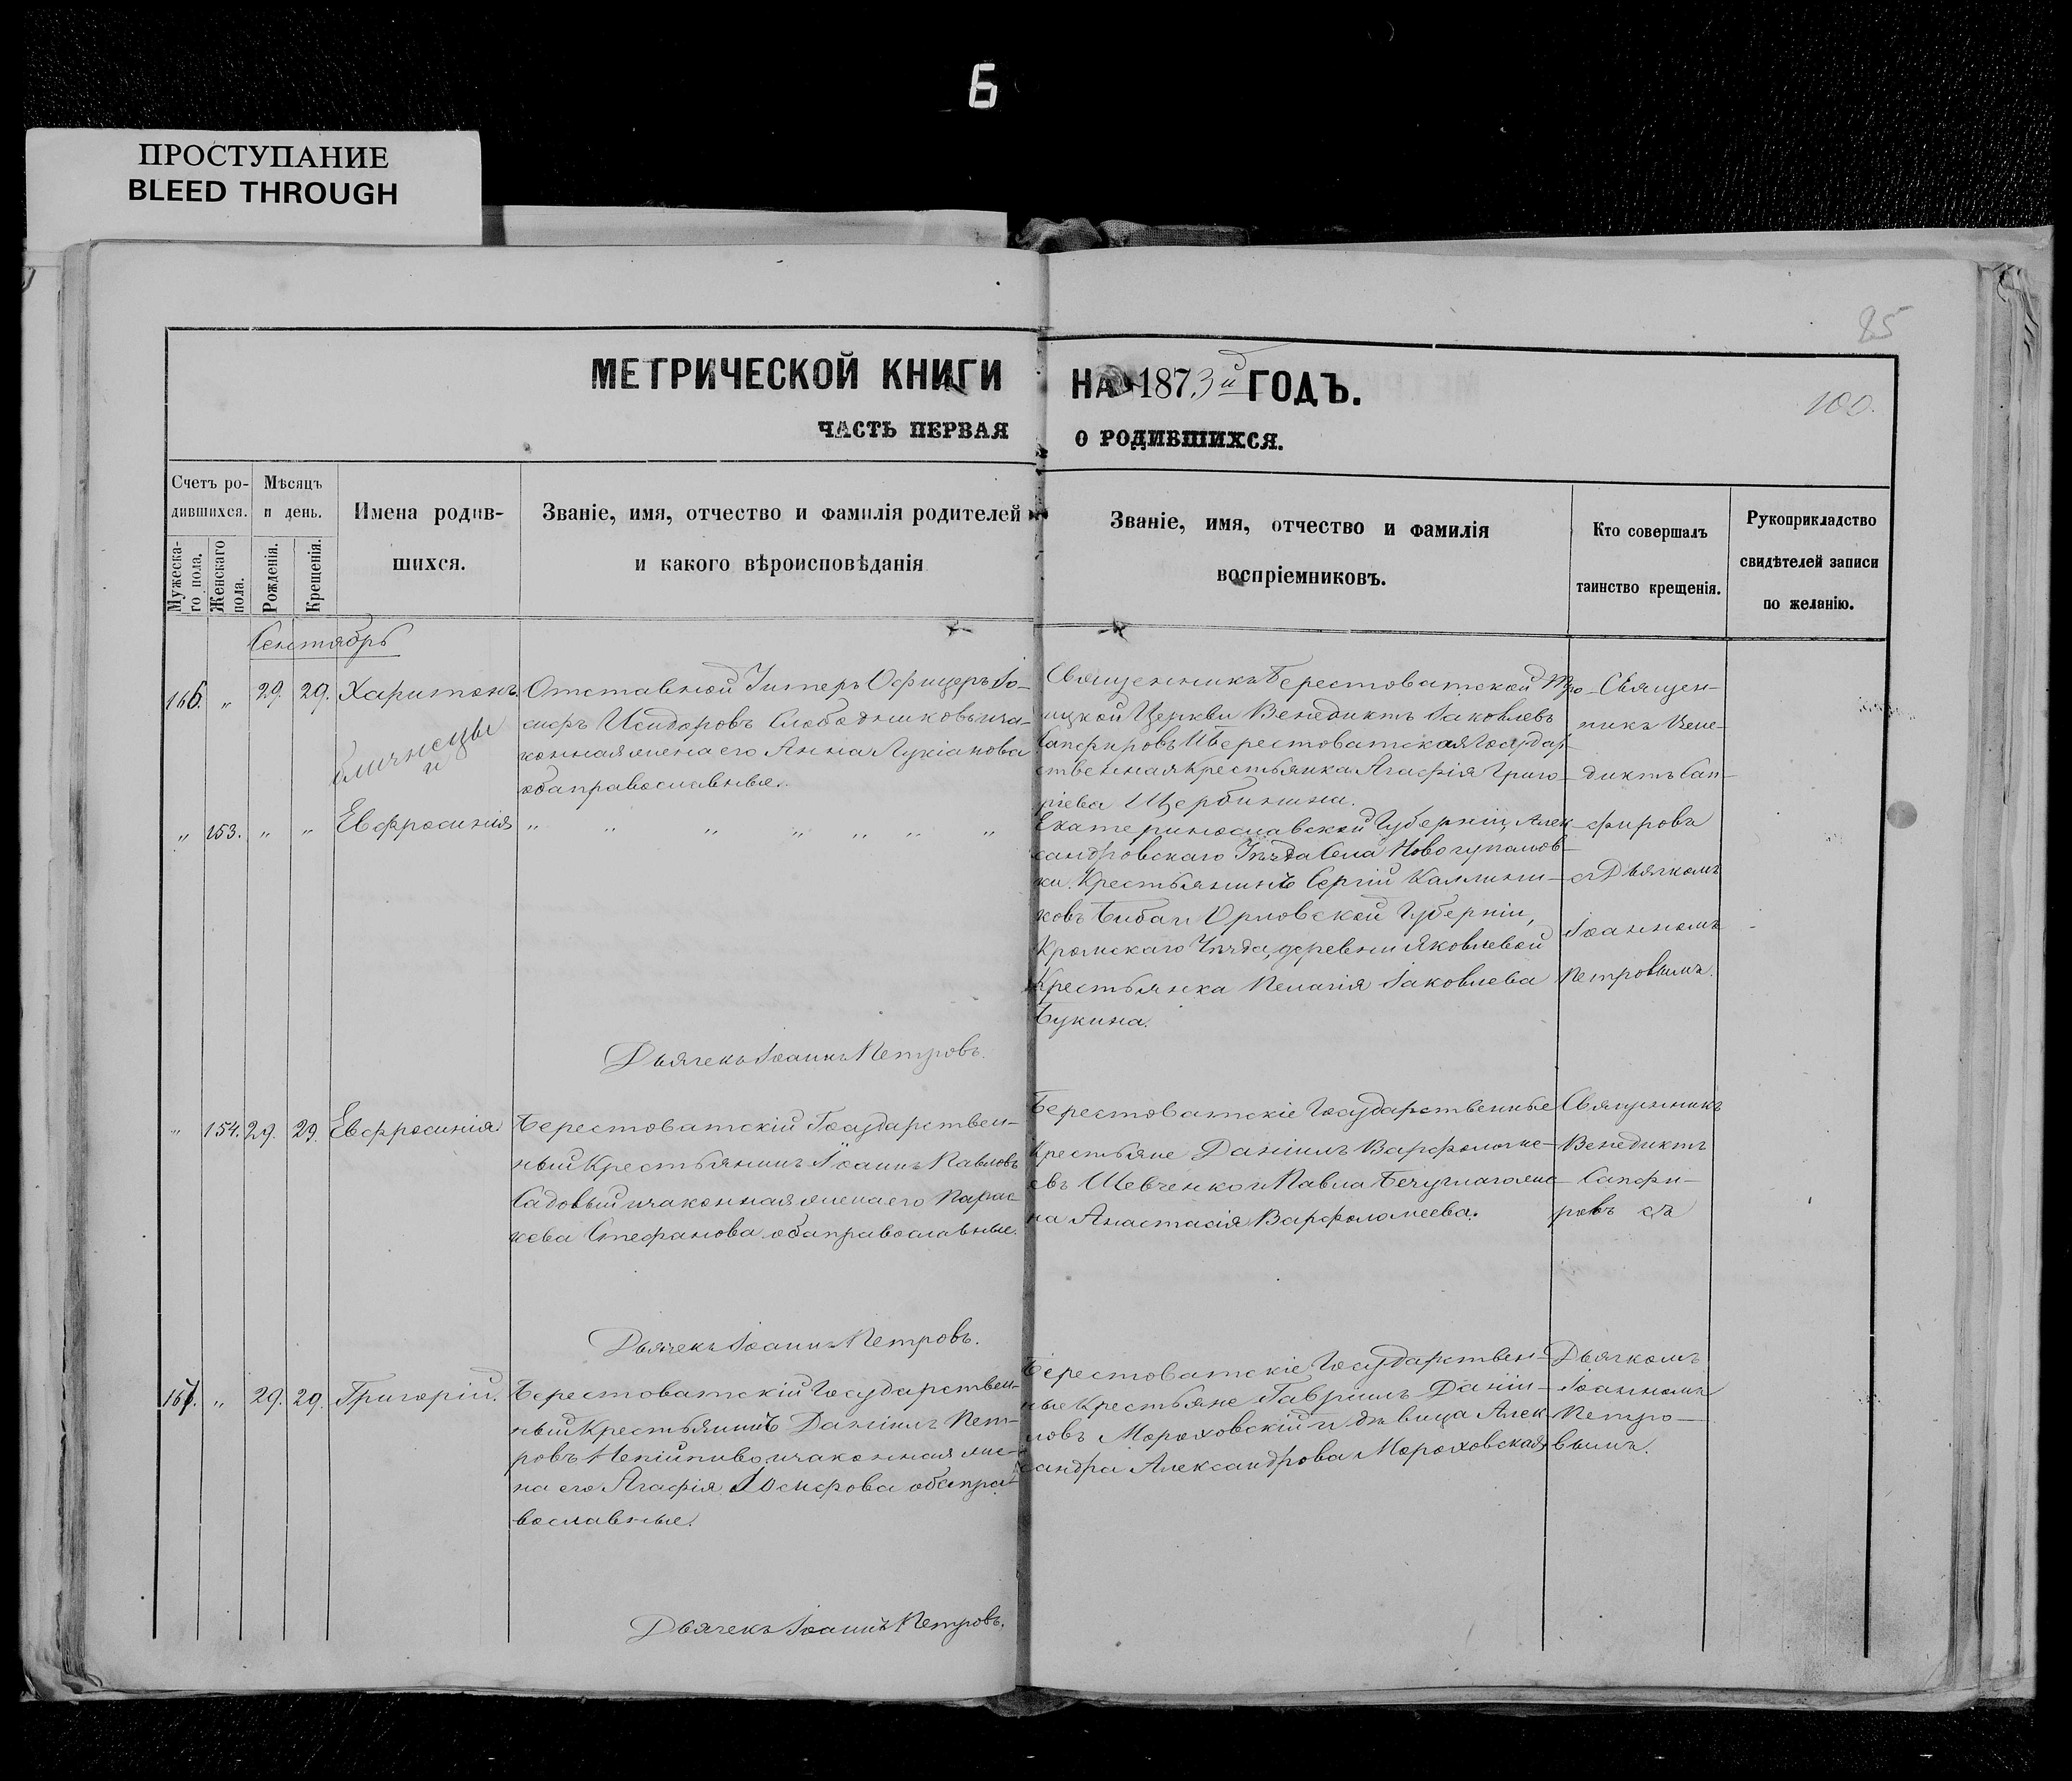 Б
ПРОСТУПАНИЕ
BLEED THROUGH
85
МЕТРИЧЕСКОЙ КНИГИ НА 1873й ГОДЪ.
100.
ЧАСТЬ ПЕРВАЯ О РОДИВШИХСЯ.
Счетъ ро-
дившихся.
Мужеска-
го пола.
Женскаго
пола.
Мѣсяцъ
и день.
Рожденія.
Крещенія.
Имена родив-
шихся.
Званіе, имя, отчество и фамилія родителей
и какого вѣроисповѣданія
Званіе, имя, отчество и фамилія
воспріемниковъ.
Кто совершалъ
таинство крещенія.
Рукоприкладство
свидѣтелей записи
по желанію.
Сентябрь
166. „ 29. 29. Харитонъ
близнецы
и
Отставной Унтеръ Офицеръ Іо-
сифъ Исидоровъ Слободниковъ иза-
конная жена его Анна Лукіанова
оба православные.
Священникъ Берестоватской Тро-
ицкой Церкви Венедиктъ Іаковлевъ
Сапфировъ и Берестоватская Государ-
ственная Крестьянка Агафія Григо-
ріева Щербинина.
Священ-
никъ Вене-
диктъ Сап-
фировъ
съ Дьячкомъ
Іоанномъ
Петровымъ.
„ 153. „ „ Евфросинія „ „ „ „ „ „ „
Екатеринославской Губерніи, Алек-
сандровскаго Уѣзда Села Новогупалов-
ки. Крестьянинъ Сергій Каллини-
ковъ Бибаи Орловской Губерніи,
Кромскаго Уѣзда, деревни Яковлевой
Крестьянка Пелагія Іаковлева
Букина.
Дьячекъ Іоаннъ Петровъ.
„ 154. 29. 29. Евфросинія.
Берестоватскій Государствен-
ный Крестьянинъ Іоаннъ Павловъ
Садовый изаконная жена его Парас-
кева Стефанова оба православные.
Берестоватскіе Государственные
Крестьяне Даніилъ Варфоломе-
евъ Шевченко и Павла Бечуглаго же-
на Анастасія Варфоломеева.
Священникъ
Венедиктъ
Сапфи-
ровъ съ
Дьячекъ Іоаннъ Петровъ.
167. „ 29. 29. Григорій.
Берестоватскій Государствен-
ный Крестьянинъ Даніилъ Пет-
ровъ Непійпиво изаконная же-
на его Агафія Іосифова оба пра-
вославные.
Берестоватскіе Государствен-
ные Крестьяне Гавріилъ Даніи-
ловъ Мороховскій и дѣвица Алек-
сандра Александрова Мороховская
Дьячкомъ
Іоанномъ
Петро-
вымъ.
Дьячекъ Іоаннъ Петровъ.